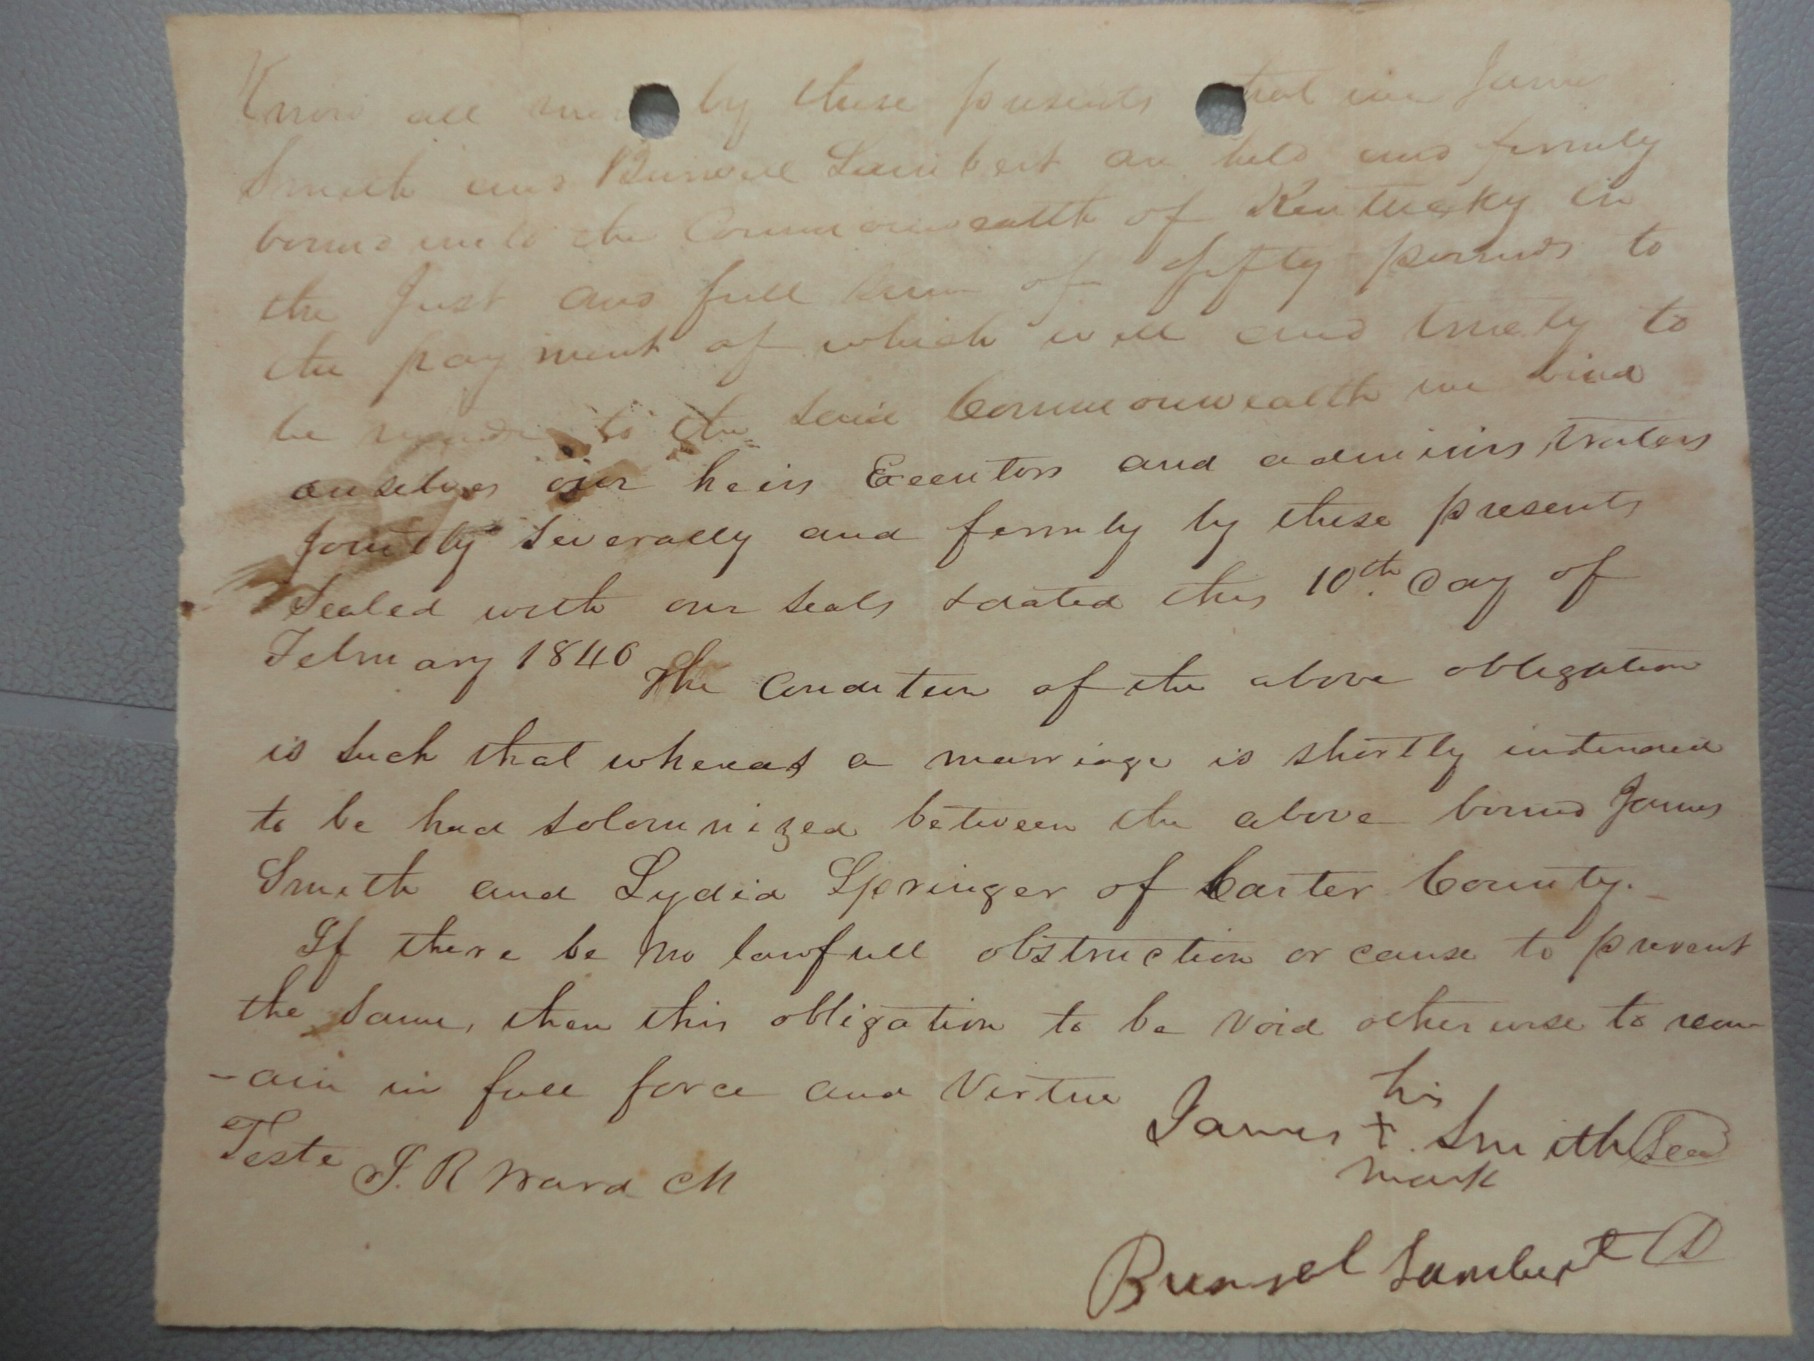 Know all men by these presents that we James
Smith and Burwell Lambert are held and firmly
bound unto the Commonwealth of Kentucky in
the Just and full sum of fifty pounds to
the payment of which well and truely to
be made to the said Commonwealth we bind
ourselves our heirs Executors and adminins,trators
Jointly Severally and firmly by these presents
Sealed with our seals & dated this 10th. day of
February 1840 The Condition of the above obligation
is such that whereas a marriage is shortly intended
to be had solomnized between the above bound James
Smith and Lydia Springer of Carter County.
If there be no lawfull obstruction or cause to prevent
the same, then this obligation to be void otherwise to rem
-ain in full force and Virtue
his
James + Smith Seal
mark
Teste J. R Ward
Lambert